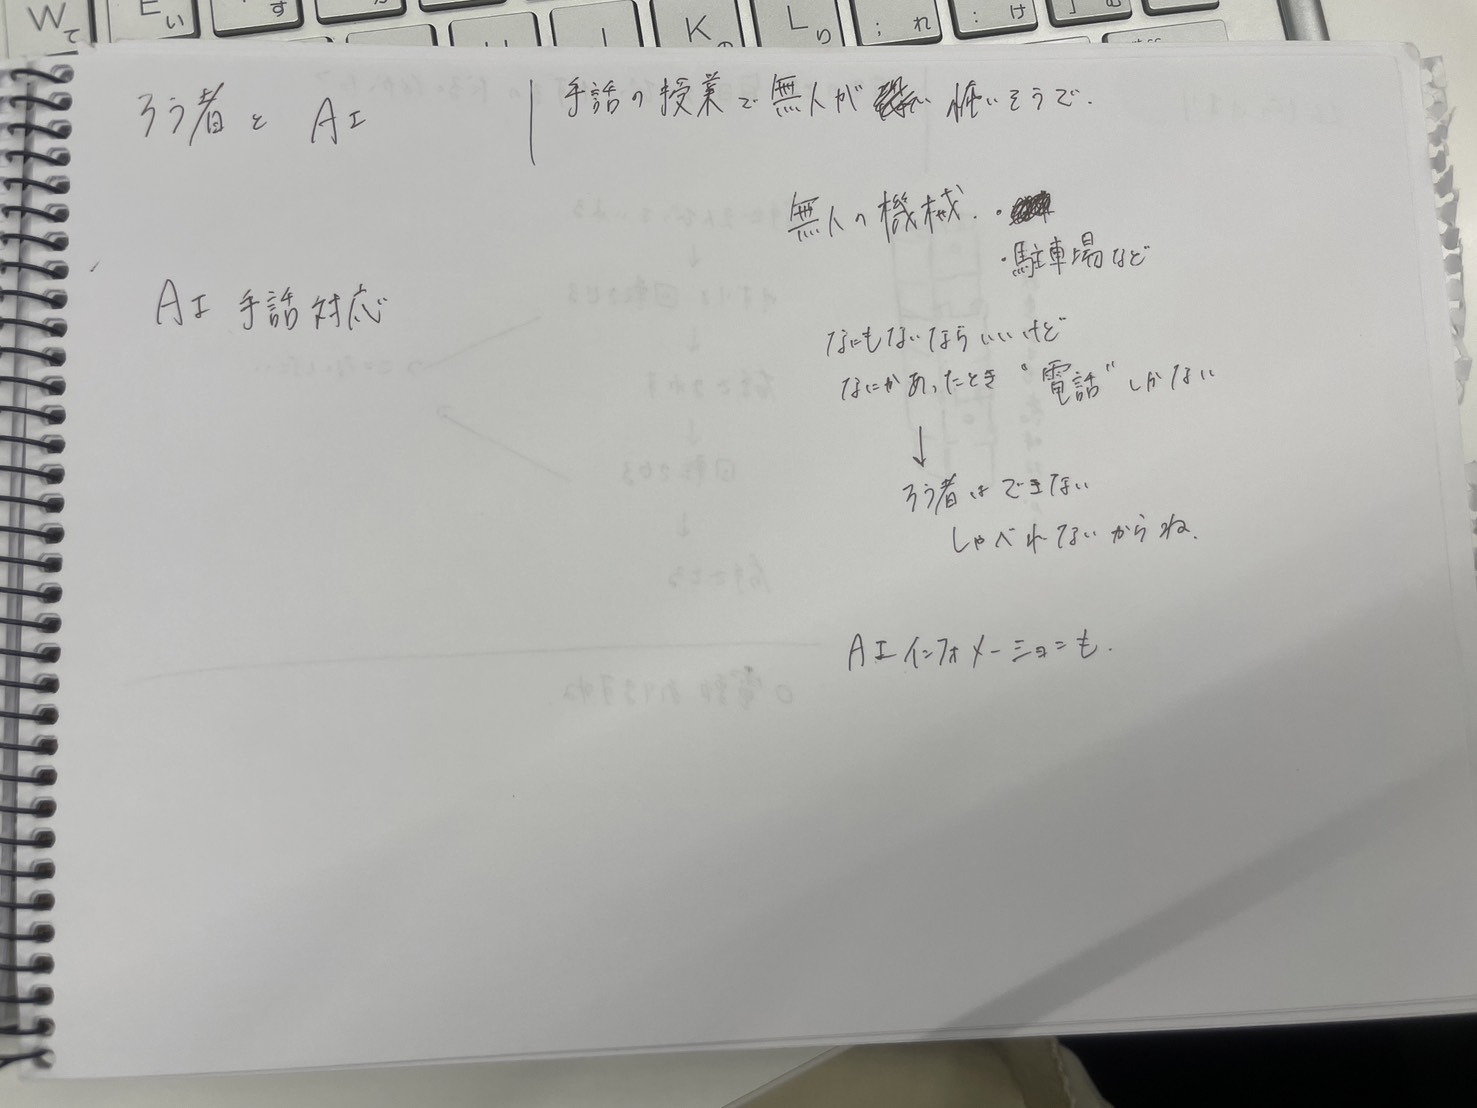 W て
E い
す
K の
L り
; れ
: け
] む
ろう者と AI
手話の授業で無人が 怖いそうで.
無人の機械. ・
・駐車場など
AI 手話対応
なにもないならいいけど
なにかあったとき "電話" しかない
↓
ろう者はできない
しゃべれないからね.
AIインフォメーションも.